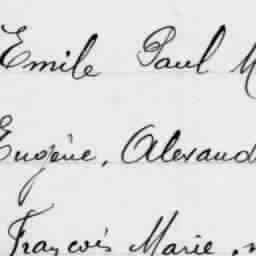 Emile Paul M
Eugène, Alexand
François Marie, n